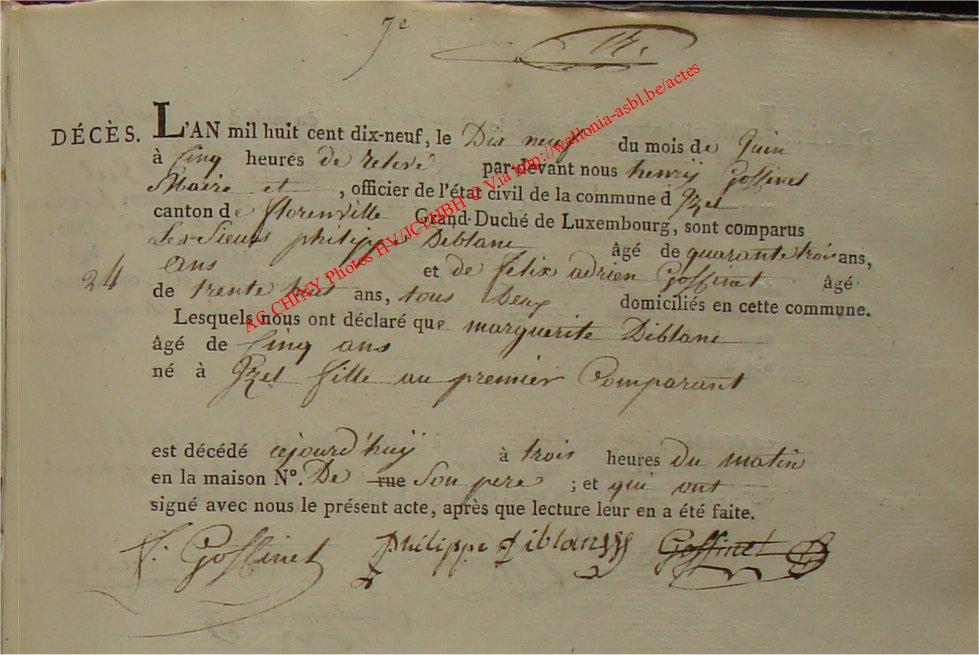 7e
DÉCÈS. L'AN mil huit cent dix-neuf, le Dix neuf du mois de Juin
à Cinq heures de relevé par-devant nous henrÿ Goffinet
Maire et , officier de l'état civil de la commune d'Yzel
canton de florenville Grand-Duché de Luxembourg, sont comparus
Les Sieurs philippe Diblane âgé de quarante trois ans,
ans et de felix adrien Goffinet âgé
24
de trente huit ans, tous Deux domiciliés en cette commune.
Lesquels nous ont déclaré que marguerite Diblane
âgé de Cinq ans
né à Yzel fille au premier Comparant
est décédé cejourd'huÿ à trois heures du matin
en la maison N°. De rue Son pere ; et qui ont
signé avec nous le présent acte, après que lecture leur en a été faite.
Goffinet philippe diblan Goffinet
AG CHINY Photos HV/JCT/HBH © Via http://wallonia-asbl.be/actes